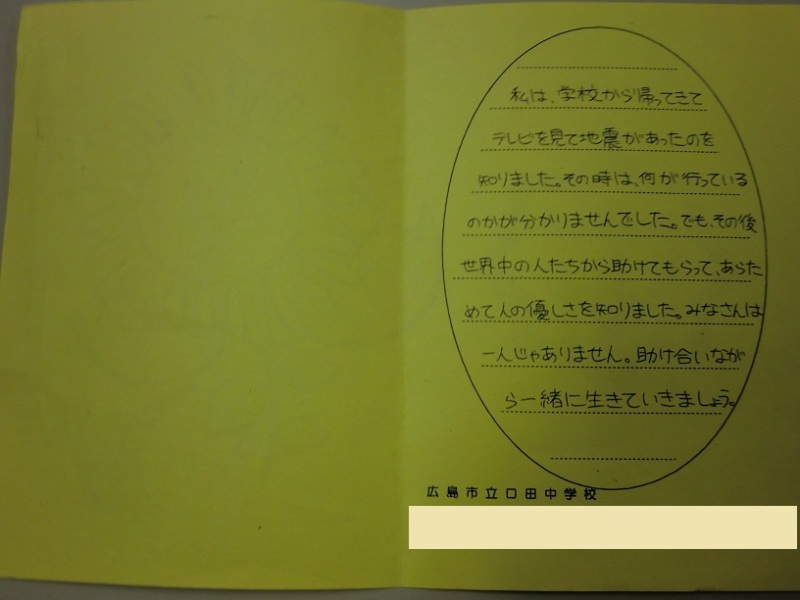 私は、学校から帰ってきて
テレビを見て地震があったのを
知りました。その時は、何が行っている
のかが分かりませんでした。でも、その後
世界中の人たちから助けてもらって、あらた
めて人の優しさを知りました。みなさんは
一人じゃありません。助け合いなが
ら一緒に生きていきましょう。
広島市立口田中学校